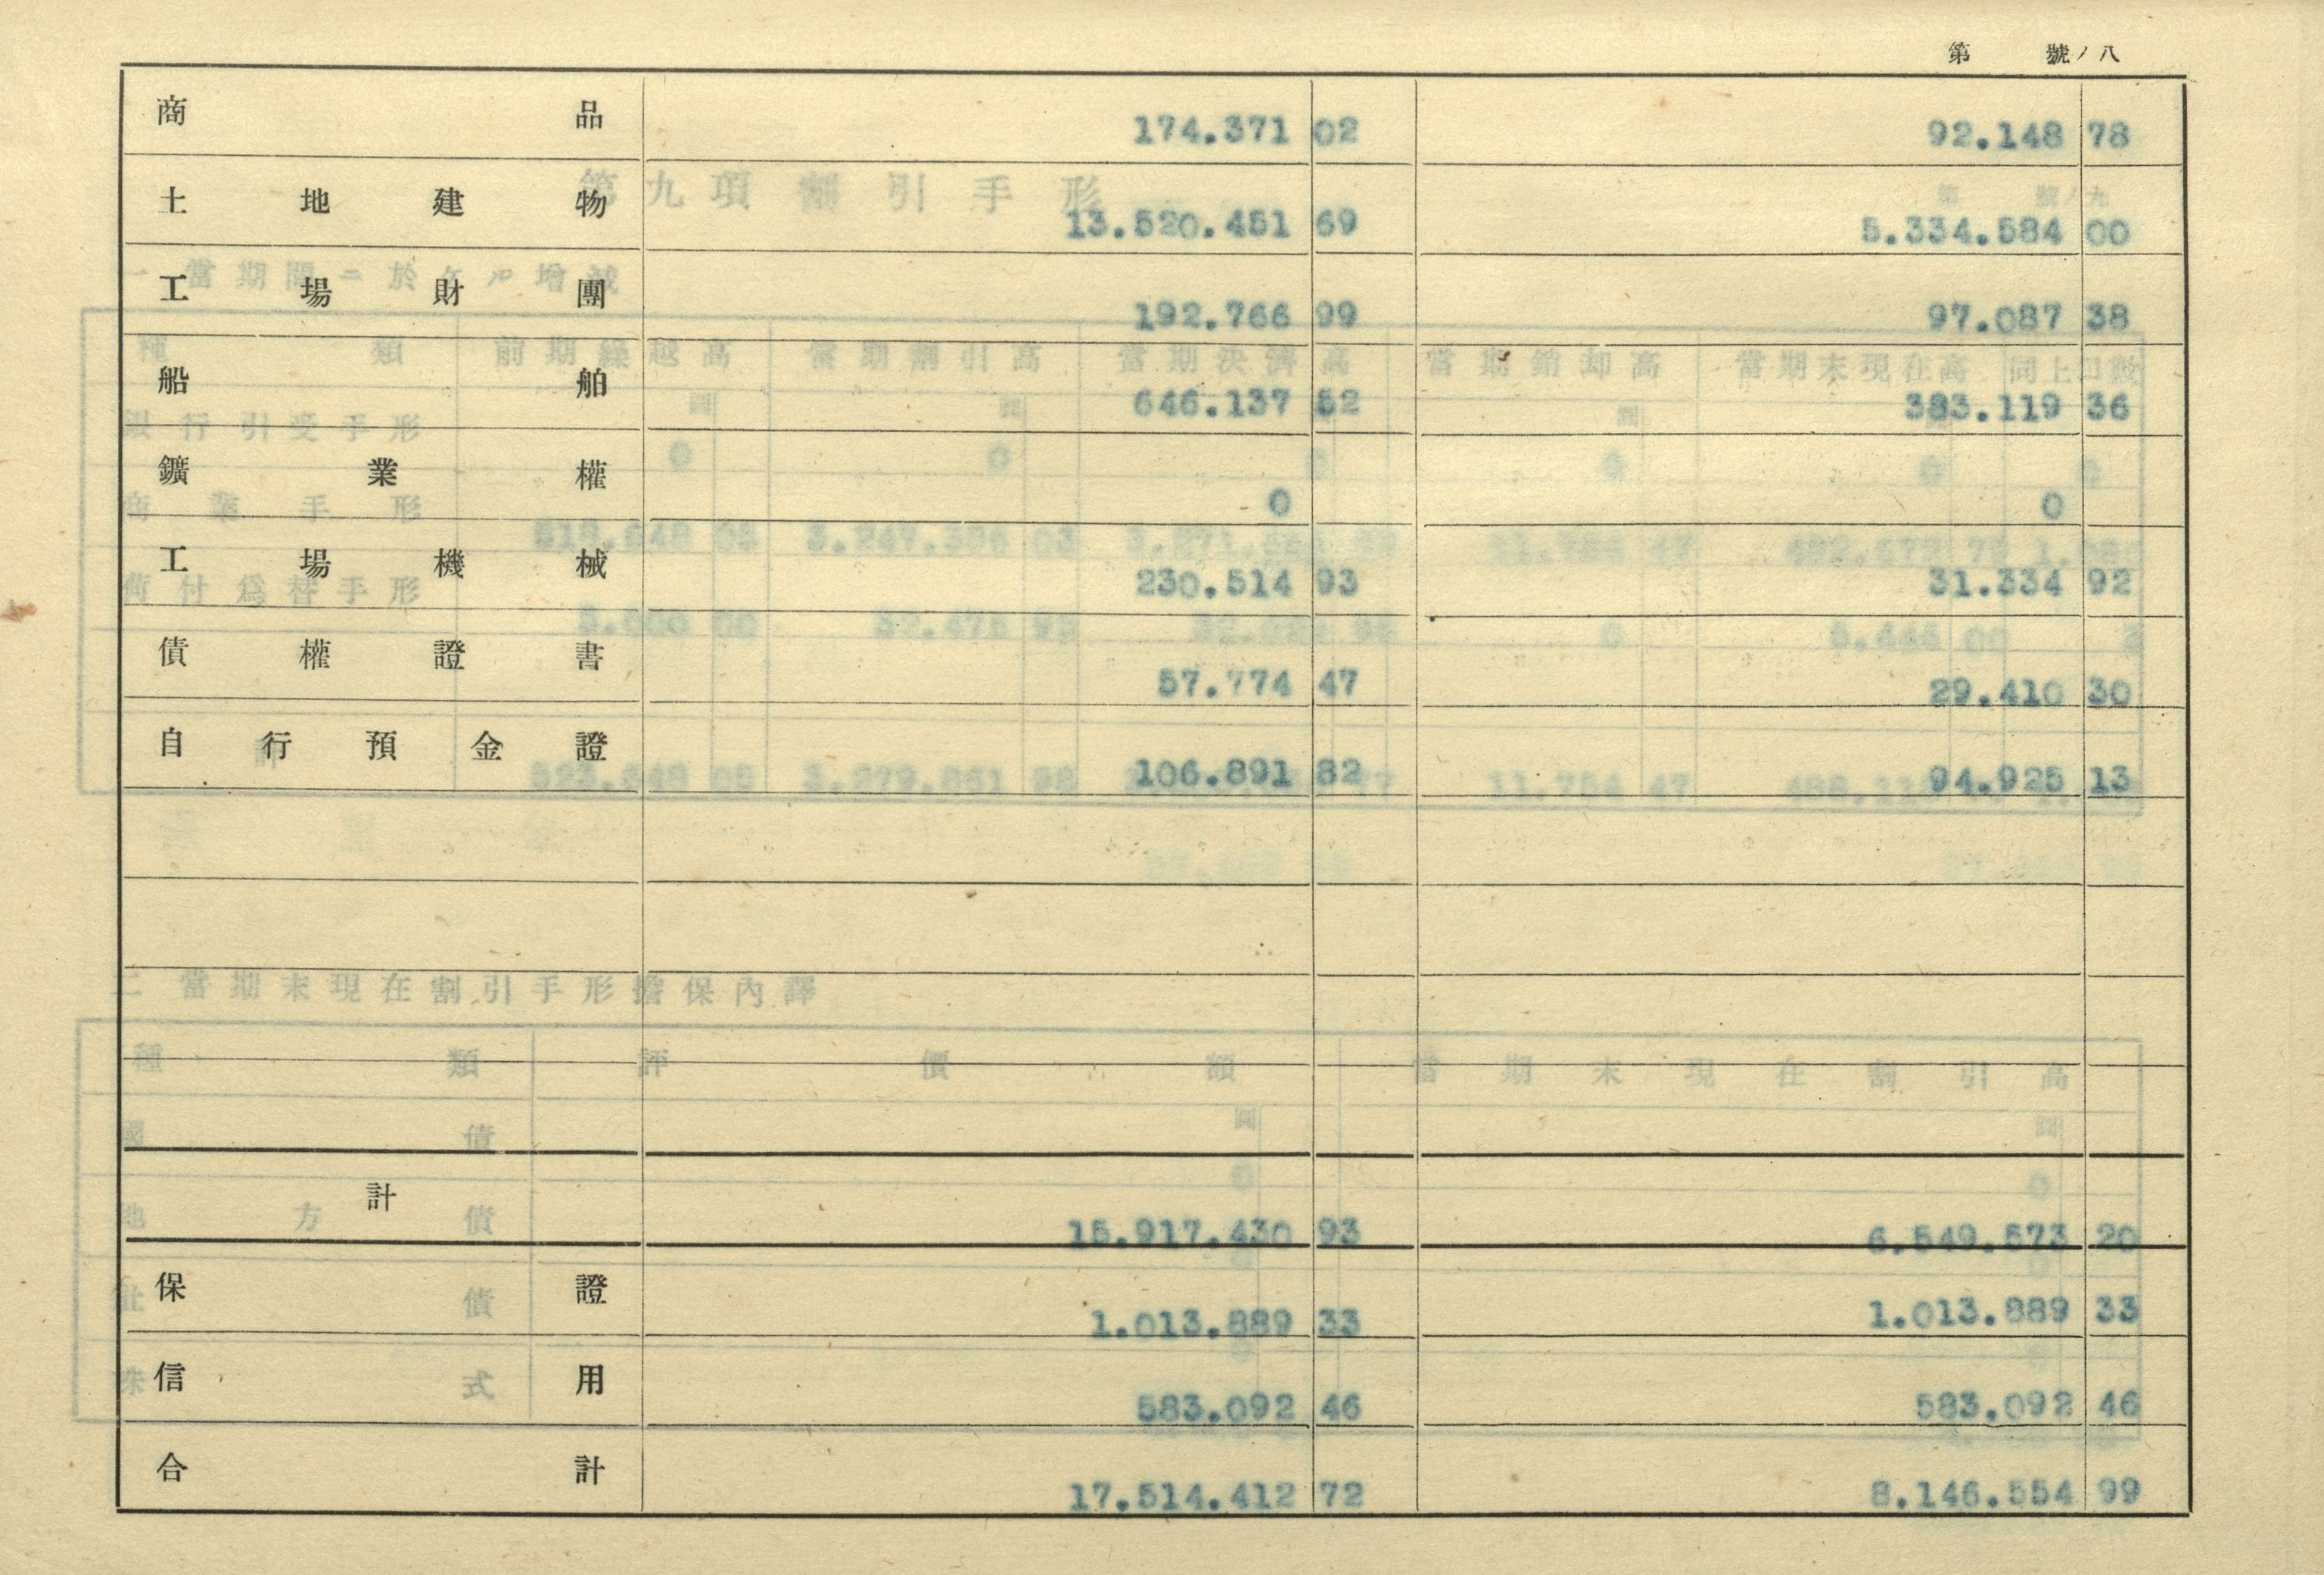 第 號ノ八
商品 174.371 02 92.148 78
土地建物 13.520.451 69 5.334.584 00
工場財團 192.766 99 97.087 38
船舶 646.137 52 383.119 36
鑛業權 0 0
工場機械 230.514 93 31.334 92
債權證書 57.774 47 29.410 30
自行預金證 106.891 82 94.925 13
計 15.917.430 93 6.549.573 20
保證 1.013.889 33 1.013.889 33
信用 583.092 46 583.092 46
合計 17.514.412 72 8.146.554 99